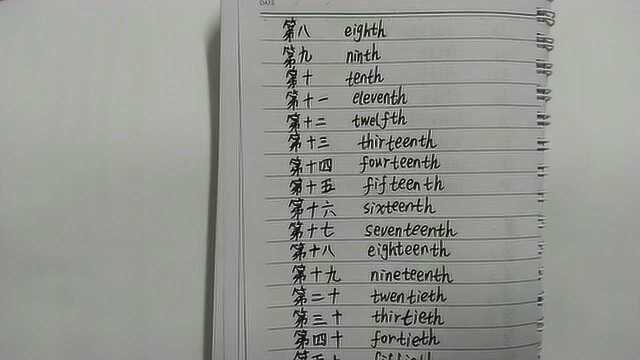 DATE
第八 eighth
第九 ninth
第十 tenth
第十一 eleventh
第十二 twelfth
第十三 thirteenth
第十四 fourteenth
第十五 fifteenth
第十六 sixteenth
第十七 seventeenth
第十八 eighteenth
第十九 nineteenth
第二十 twentieth
第三十 thirtieth
第四十 fortieth